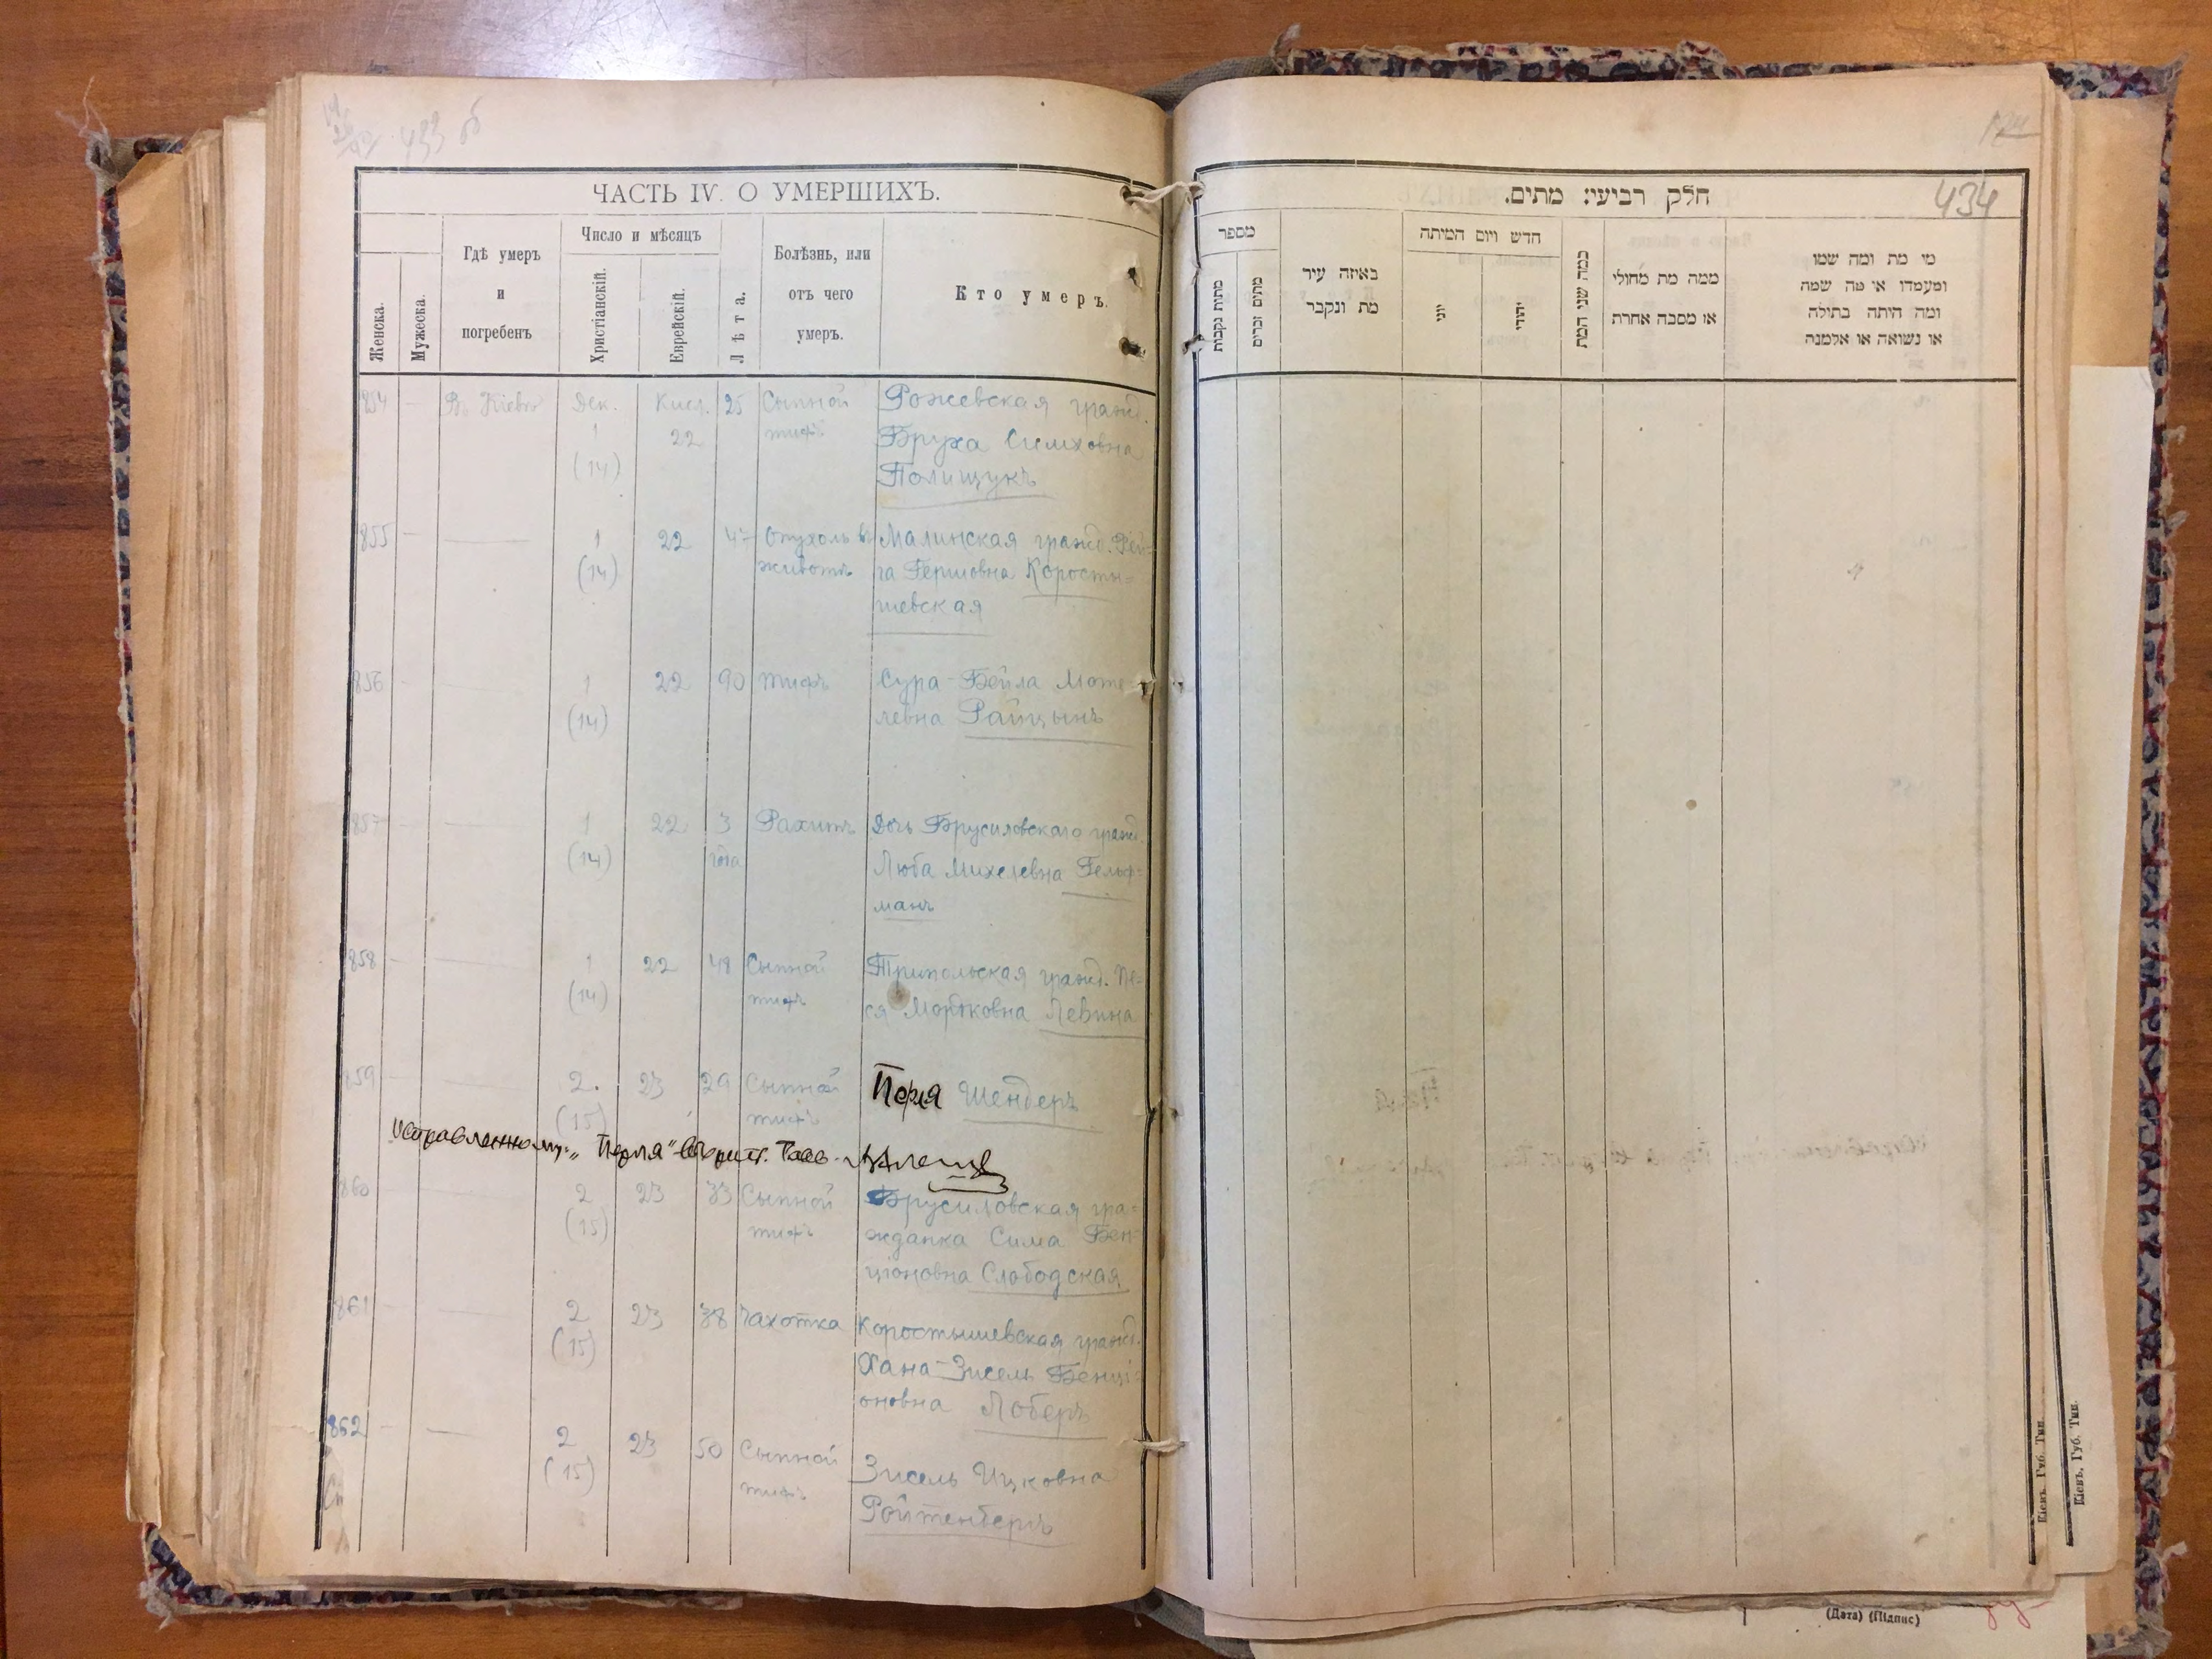 433 об
ЧАСТЬ IV. О УМЕРШИХЪ.
Женска.
Мужеска.
Гдѣ умеръ
и
погребенъ
Число и мѣсяцъ
Христіанскій.
Еврейскій.
Лѣта.
Болѣзнь, или
отъ чего
умеръ.
Кто умеръ.
854 — Въ Кіевѣ Дек. Кисл. 25 Сыпной Рожевская гражд.
1 22 тифъ Бруха Симховна
(14) Полищукъ
855 — — 1 22 47 Опухоль въ Малинская гражд. Рей-
(14) животѣ га Гершовна Коросты-
шевская
856 — — 1 22 90 тифъ Сура-Бейла Моте
(14) левна Райцынъ
857 — — 1 22 3 Рахитъ Дочь Брусиловскаго гражд.
(14) года Люба Михелевна Гельф-
манъ
858 — — 1 22 48 Сыпной Трипольская гражд. Пе-
(14) тифъ ся Мортковна Левина
859 — — 2. 23 29 Сыпной Перля Шендеръ
(15) тифъ
Исправленному: "Перля" вѣрить.
860 — — 2 23 33 Сыпной Брусиловская гра-
(15) тифъ жданка Сима Бен-
ціоновна Слободская
861 — — 2 23 38 Чахотка Коростышевская гражд.
(15) Хана-Зисель Бенці-
оновна Лоберъ
862 — — 2 23 50 Сыпной Зисель Ицковна
(15) тифъ Ройтенбергъ
434
חלק רביעי: מתים.
מספר
מתות נקבות
מתים זכרים
באיזה עיר
מת ונקבר
חדש ויום המיתה
יוני
יהודי
כמה שני המת
ממה מת מחולי
או מסבה אחרת
מי מת ומה שמו
ומעמדו או מה שמה
ומה היתה בתולה
או נשואה או אלמנה
Кіевъ. Губ. Тип.
Кіевъ. Губ. Тип.
(Дата) (Підпис)